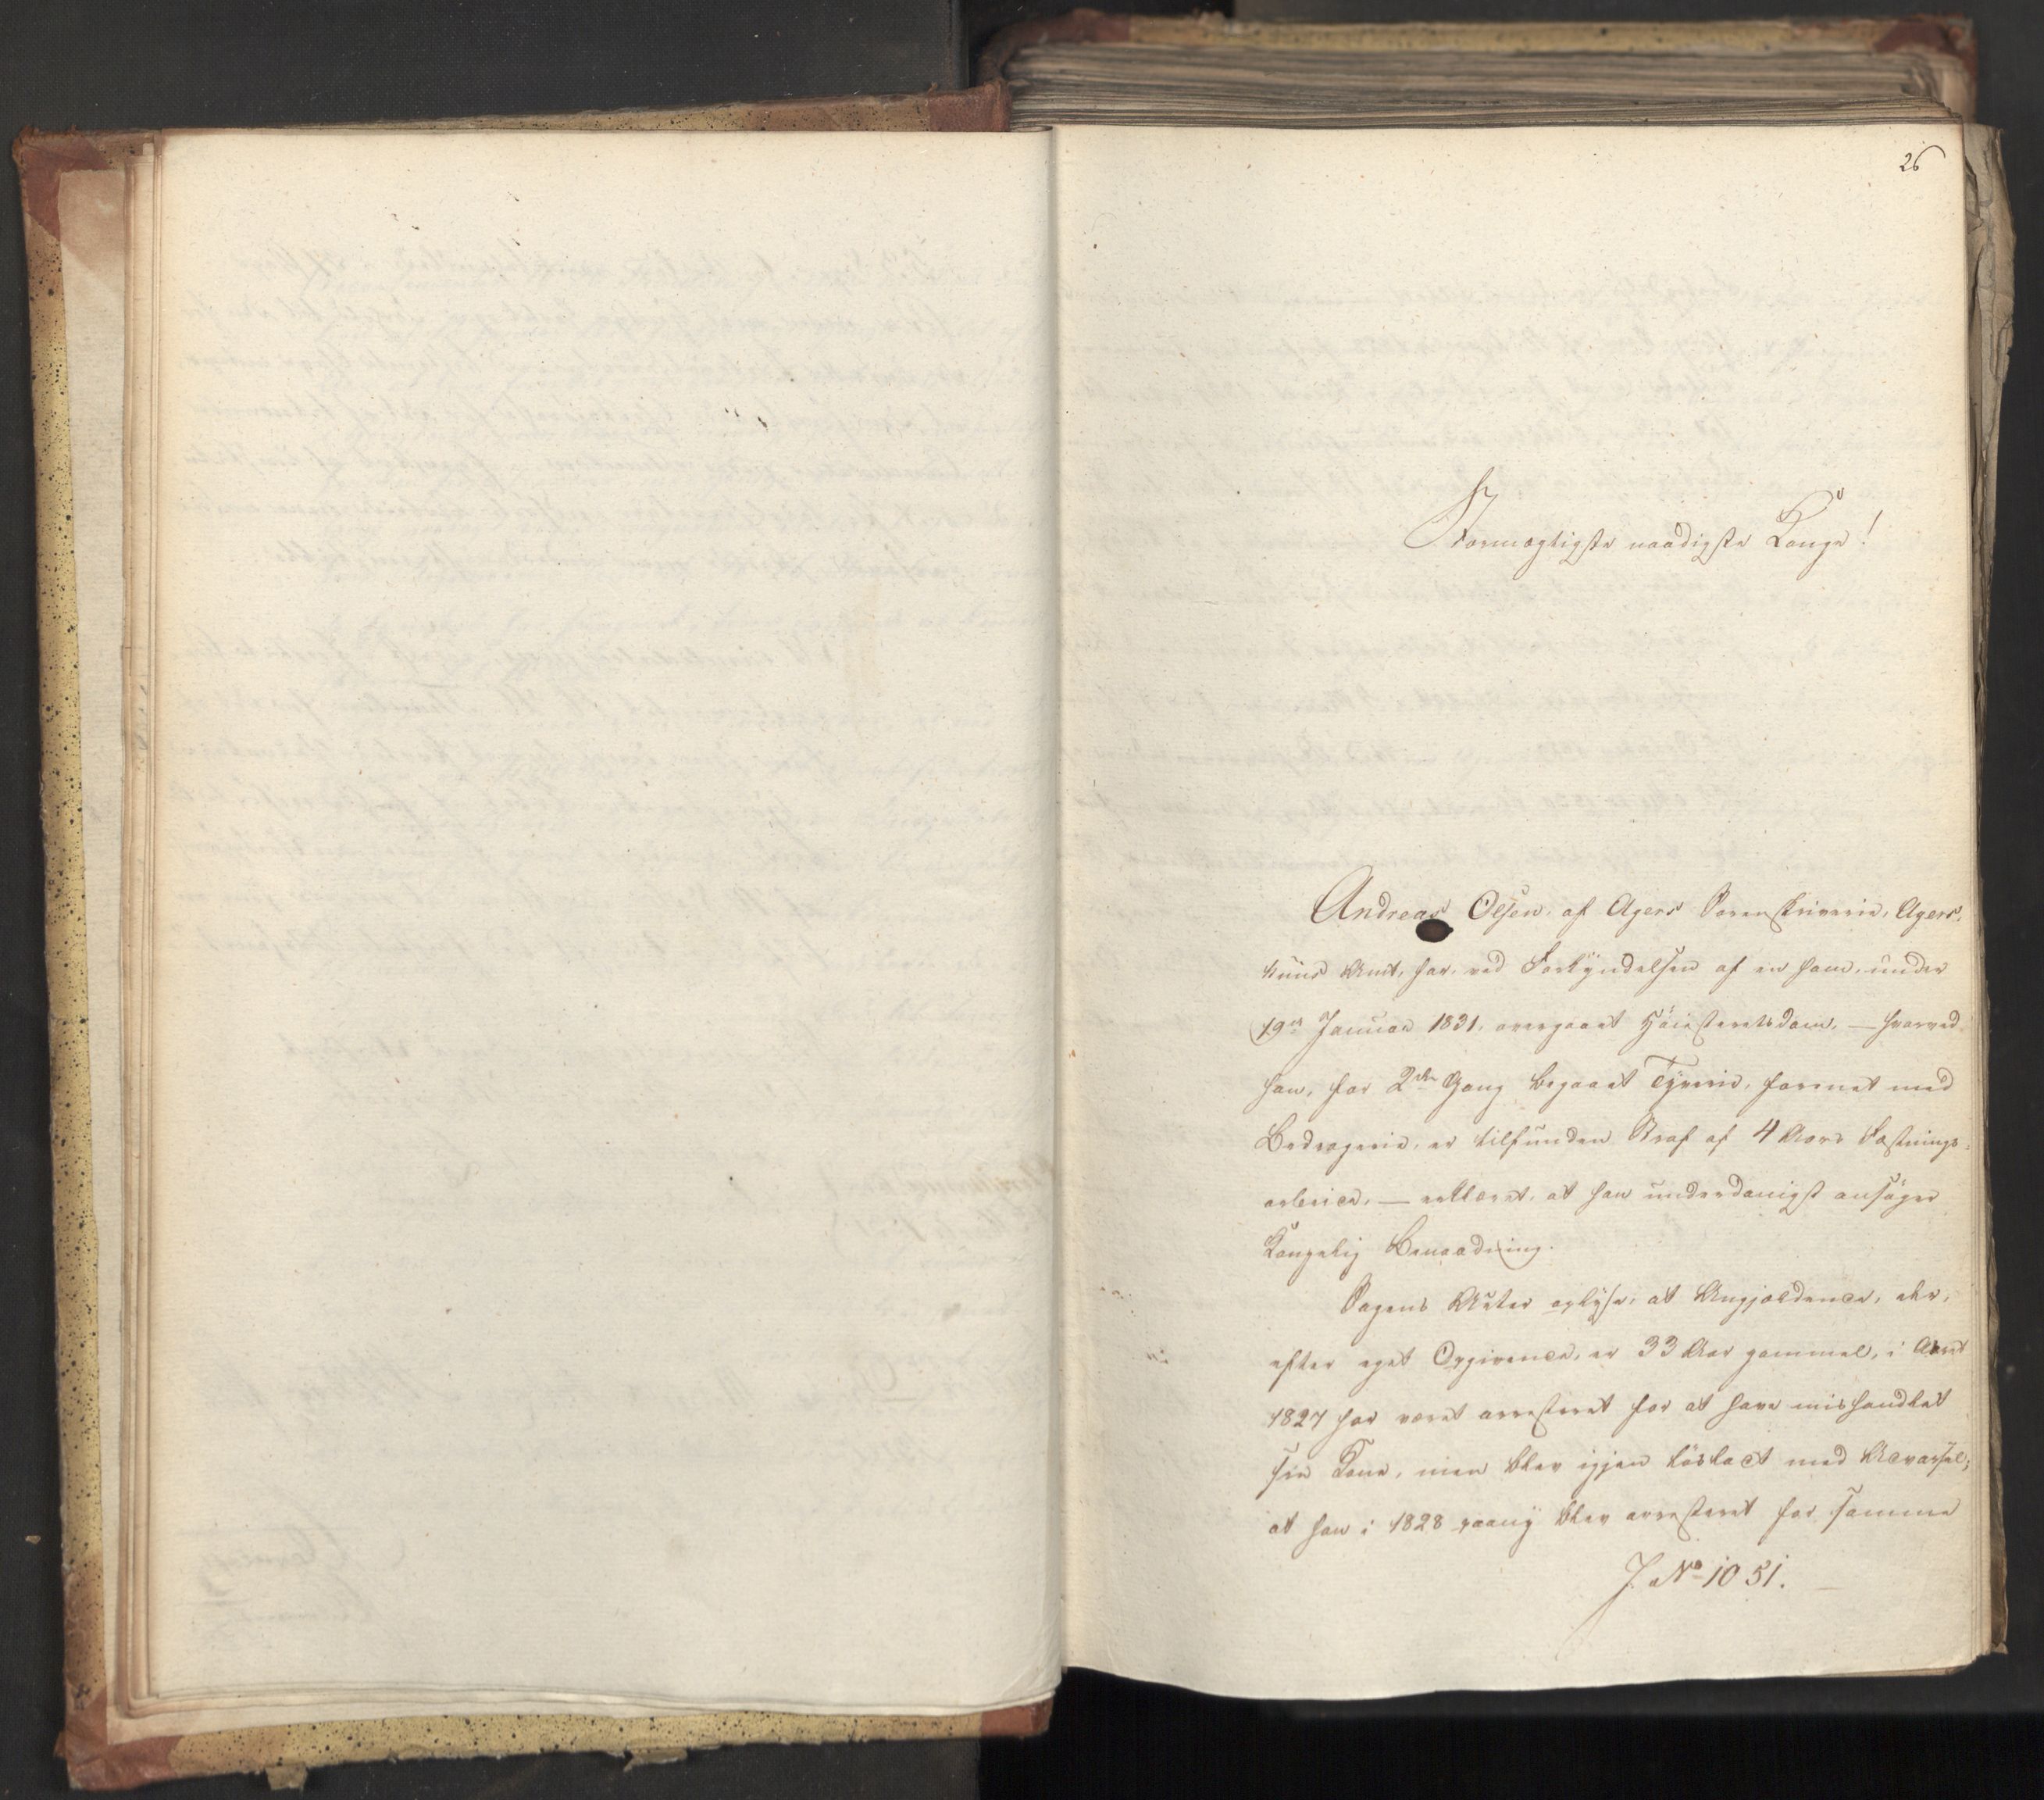 26
Stormægtigste naadigste Konge!
Andreas Olsen, af Agers Sorenskriverie, Agers-
huus Amt, har, ved Forkyndelsen af en ham, under
19de Januar 1831, overgaaet Høiesteretsdom, — hvorved
han, for 2den Gang begaaet Tyverie, forenet med
Bedragerie, er tilfunden Straf af 4 Aars Fæstnings-
arbeide, — erklæret, at han underdanigst ansøger
Kongelig Benaadning.
Sagens Akter oplyse, at Angjældende, der,
efter eget Opgivende, er 33 Aar gammel, i Aaret
1827 har været arresteret for at have mishandlet
sin Kone, men blev igjen løsladt med Advarsel;
at han i 1828 paany blev arresteret for samme
J. No 1051.